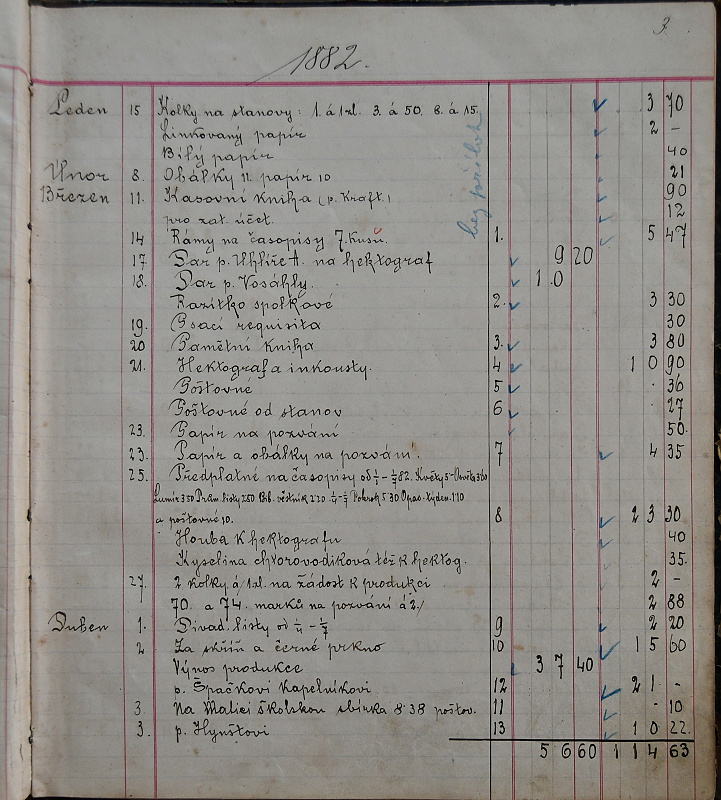 3.
1882.
Leden 15 Kolky na stanovy: 1. á 1 zl. 3. á 50. 8. á 15. 3 70
Linkovaný papír 2 -
Bílý papír 40
Únor 8. Obálky 11. papír 10 21
Březen 11. Kasovní kniha (p. Kraft.) 90
pro zat. účet. 12
14 Rámy na časopisy 7. Kusů. 1. 5 47
17 Dar p. Uhlíře A. na hektograf 9 20
18. Dar p. Vosáhly. 10
Razítko spolkové 2. 3 30
19. Psací requisita 30
20 Pamětní Kniha 3. 3 80
21. Hektograf a inkousty. 4 10 90
Poštovné 5 36
Poštovné od stanov 6 27
23. Papír na pozvání 50.
23. Papír a obálky na pozvání. 7 4 35
25. Předplatné na časopisy od 1/1 - 1/7 82. Květy 5 - Osvěta 3 60
Lumír 3 50 Prům. listy 2 50 Bib. věstník 2 20 1/4 - 1/7 Pokrok 5 30 Opav. týden. 1 10
a poštovné 10. 8 23 30
Houba K hektografu 40
Kyselina chlorovodíková též k hektog. 35.
27. 2 kolky á 1 zl. na žádost k produkci 2 -
70. a 74. marků na pozvání á 2./ 2 88
Duben 1. Divad. listy od 1/4 - 1/7 9 2 20
2 Za skříň a černé prkno 10 15 60
Výnos produkce 37 40
p. Špačkovi Kapelníkovi 12 21 -
3. Na Matici školskou sbírka 8·38 poštov. 11 - 10
3. p. Hynštovi 13 10 22.
56 60 114 63
bez příloh